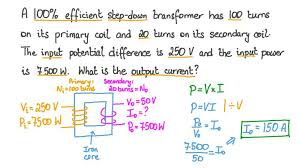 A 100% efficient step-down transformer has 100 turns
on its primary coil and 20 turns on its secondary coil
The input potential difference is 250 V and the input power
is 7500 W. What is the output current?
Primary:
N₁=100 turns
Secondary:
20 turns=N₀
V₁=250V
P₁=7500W
V₀=50V
I₀=?
P₀=7500W
Iron
core
P=V×I
P=VI | ÷V
P₀/V₀ = I₀
7500/50 = I₀
I₀=150A